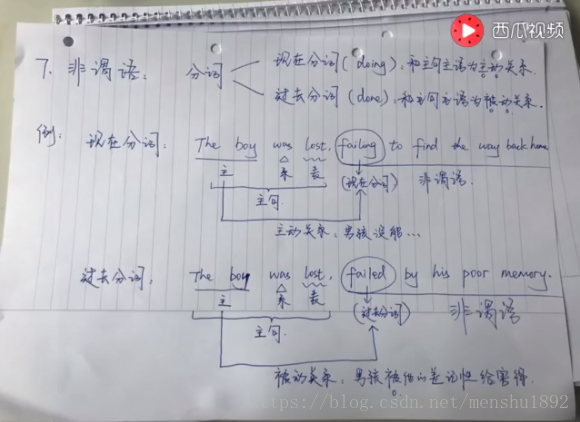 西瓜视频
7. 非谓语: 分词
现在分词(doing): 和主句主语为主动关系.
过去分词(done): 和主句主语为被动关系.
例: 现在分词: The boy was lost, failing to find the way back home
主 系 表 (现在分词) 非谓语.
主句
主动关系, 男孩没能...
过去分词: The boy was lost, failed by his poor memory.
主 系 表 (过去分词) 非谓语
主句
被动关系, 男孩被他的差记性给害得.
https://blog.csdn.net/menshu1892